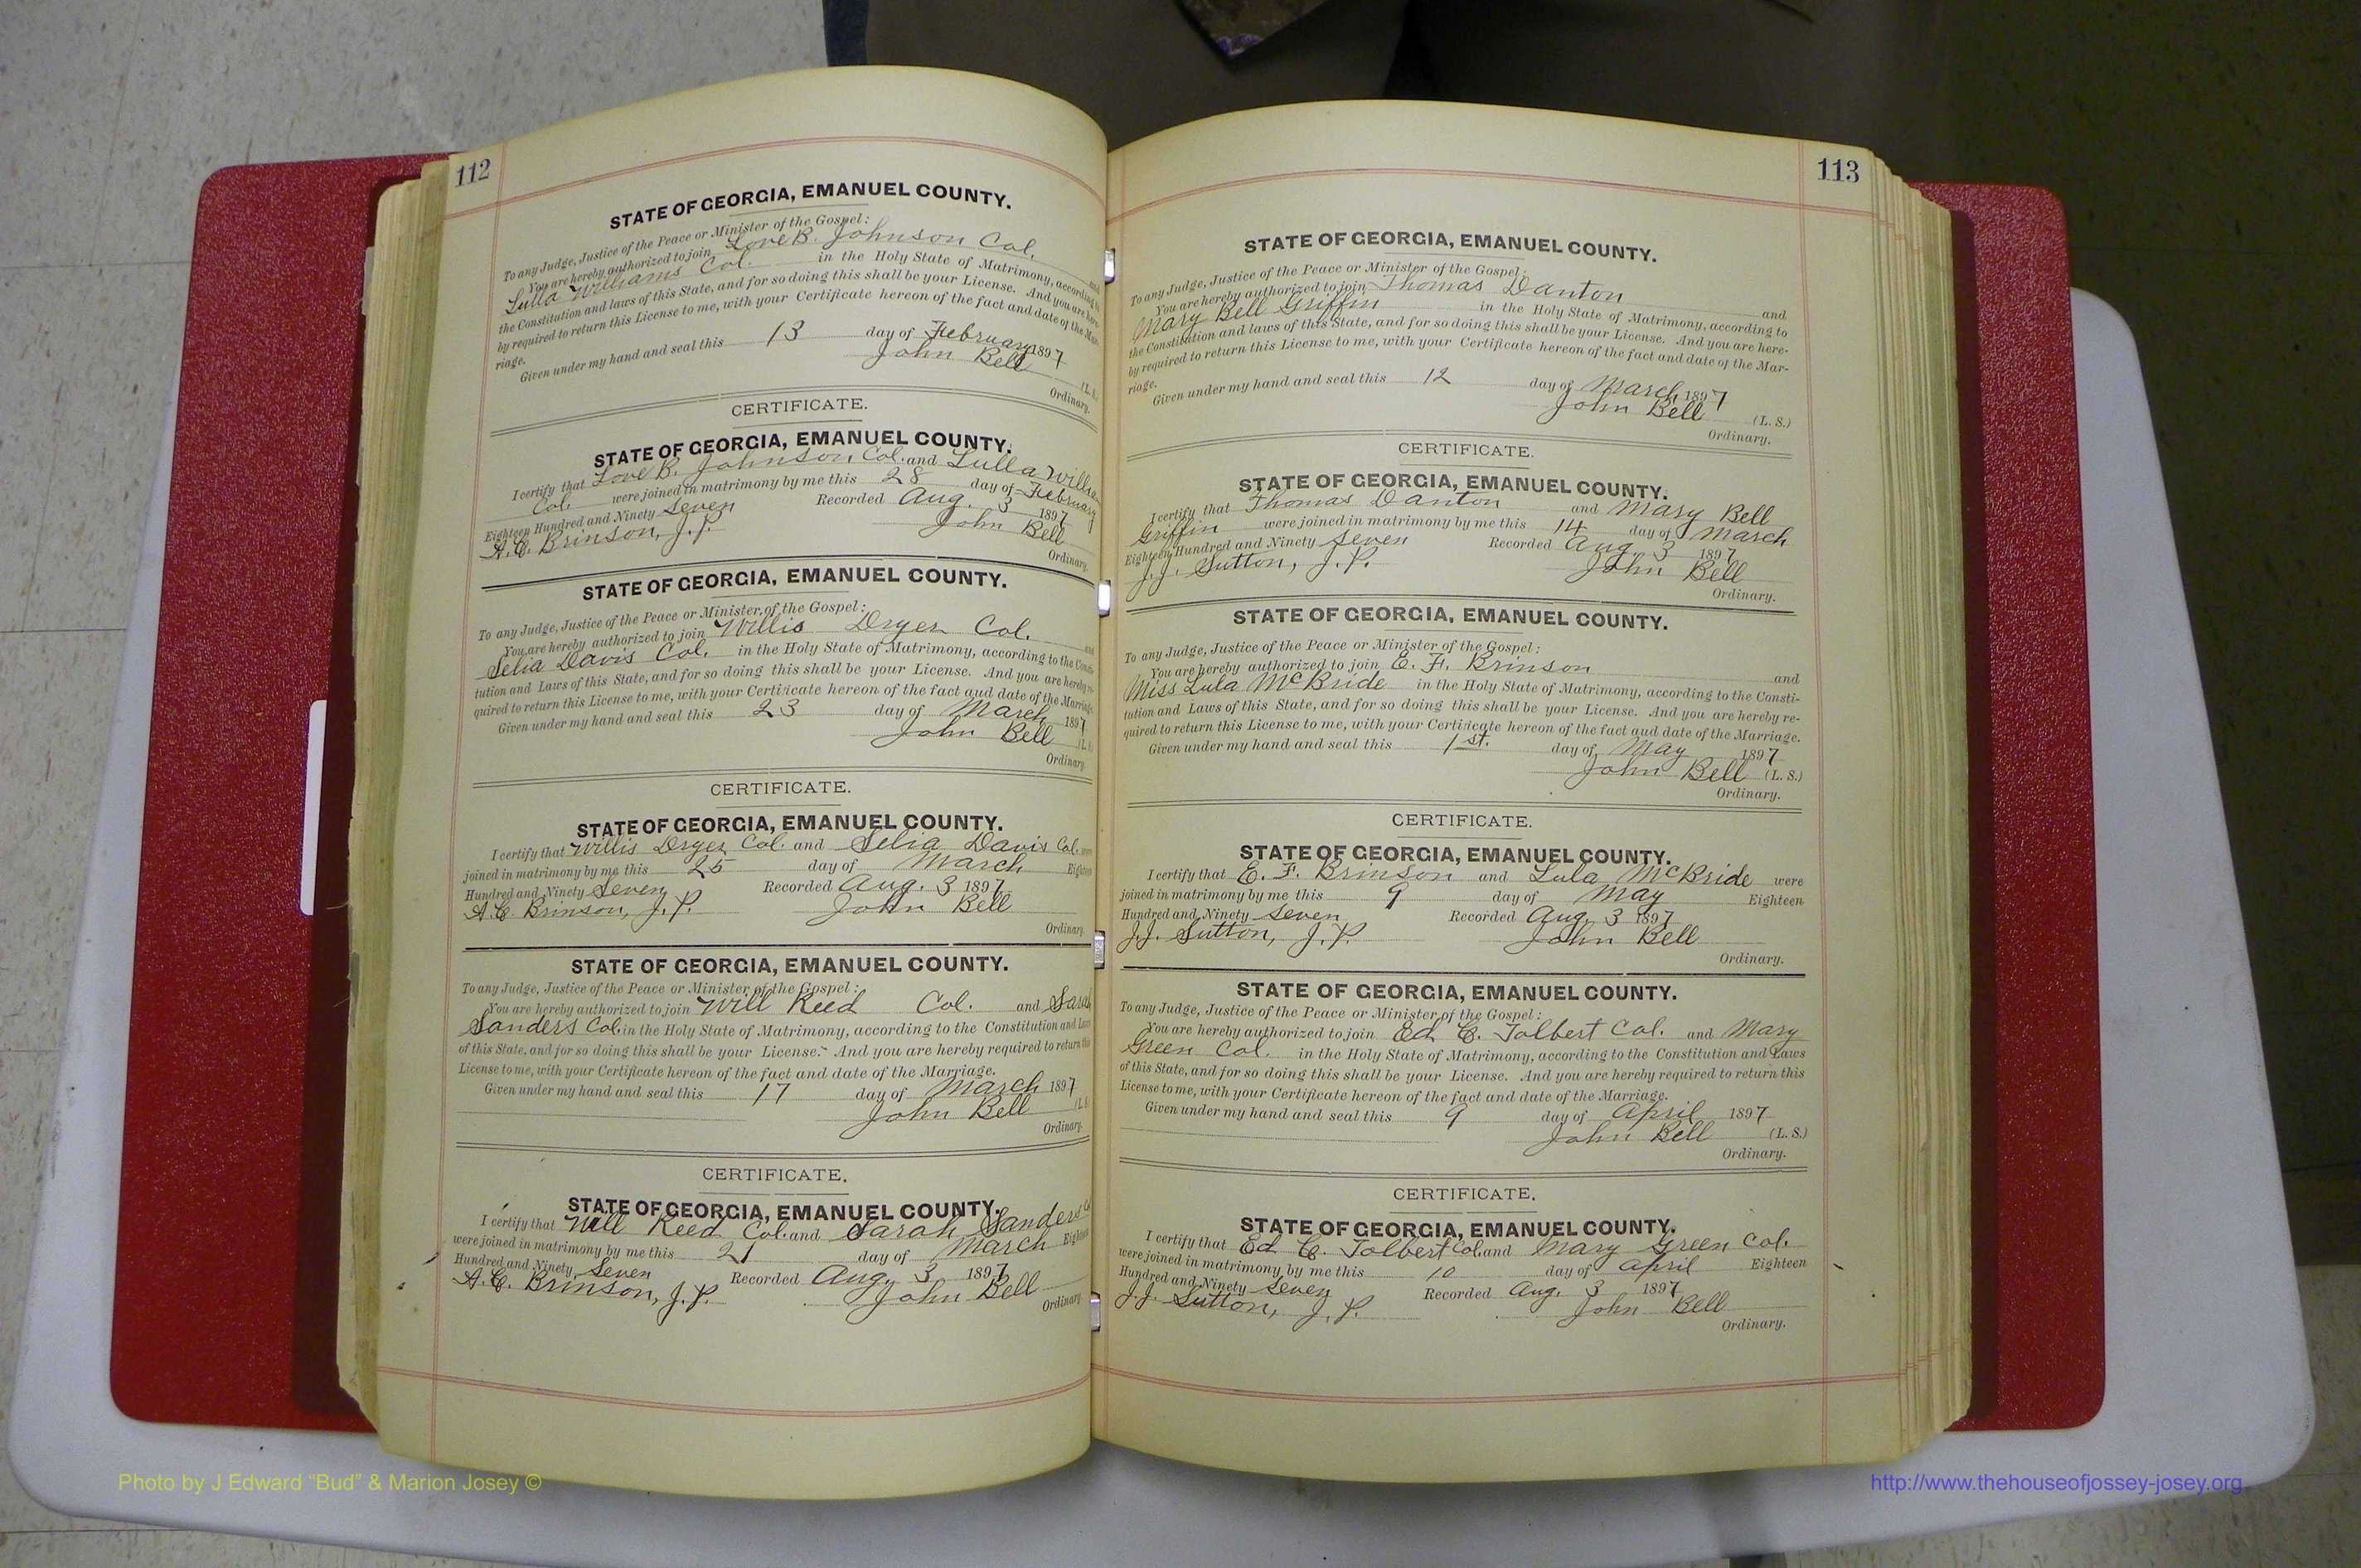 112
STATE OF GEORGIA, EMANUEL COUNTY.
To any Judge, Justice of the Peace or Minister of the Gospel:
You are hereby authorized to join Love B. Johnson Col. and
Lulla Williams Col. in the Holy State of Matrimony, according to
the Constitution and laws of this State, and for so doing this shall be your License. And you are here-
by required to return this License to me, with your Certificate hereon of the fact and date of the Mar-
riage.
Given under my hand and seal this 13 day of February 1897
John Bell (L. S.)
Ordinary.
CERTIFICATE.
STATE OF GEORGIA, EMANUEL COUNTY.
I certify that Love B. Johnson, Col. and Lulla Willia
Col. were joined in matrimony by me this 28 day of February
Eighteen Hundred and Ninety Seven Recorded Aug. 3 1897
A. C. Brinson, J. P. John Bell
Ordinary.
STATE OF GEORGIA, EMANUEL COUNTY.
To any Judge, Justice of the Peace or Minister, of the Gospel:
You are hereby authorized to join Willis Dryer Col. and
Selia Davis Col. in the Holy State of Matrimony, according to the Consti-
tution and Laws of this State, and for so doing this shall be your License. And you are hereby re-
quired to return this License to me, with your Certificate hereon of the fact and date of the Marriage.
Given under my hand and seal this 23 day of March 1897
John Bell (L. S.)
Ordinary.
CERTIFICATE.
STATE OF GEORGIA, EMANUEL COUNTY.
I certify that Willis Dryer Col. and Selia Davis Col. were
joined in matrimony by me this 25 day of March Eighteen
Hundred and Ninety Seven Recorded Aug. 3 1897
A. C. Brinson, J. P. John Bell
Ordinary.
STATE OF GEORGIA, EMANUEL COUNTY.
To any Judge, Justice of the Peace or Minister of the Gospel:
You are hereby authorized to join Will Reed Col. and Sarah
Sanders Col. in the Holy State of Matrimony, according to the Constitution and Laws
of this State, and for so doing this shall be your License. And you are hereby required to return this
License to me, with your Certificate hereon of the fact and date of the Marriage.
Given under my hand and seal this 17 day of March 1897
John Bell (L. S.)
Ordinary.
CERTIFICATE.
STATE OF GEORGIA, EMANUEL COUNTY.
I certify that Will Reed Col. and Sarah Sanders Co
were joined in matrimony by me this 21 day of March Eighteen
Hundred and Ninety Seven Recorded Aug. 3 1897
A. C. Brinson, J. P. John Bell
Ordinary.
113
STATE OF GEORGIA, EMANUEL COUNTY.
To any Judge, Justice of the Peace or Minister of the Gospel:
You are hereby authorized to join Thomas Danton and
Mary Bell Griffin in the Holy State of Matrimony, according to
the Constitution and laws of this State, and for so doing this shall be your License. And you are here-
by required to return this License to me, with your Certificate hereon of the fact and date of the Mar-
riage.
Given under my hand and seal this 12 day of March 1897
John Bell (L. S.)
Ordinary.
CERTIFICATE.
STATE OF GEORGIA, EMANUEL COUNTY.
I certify that Thomas Danton and Mary Bell
Griffin were joined in matrimony by me this 14 day of March
Eighteen Hundred and Ninety Seven Recorded Aug. 3 1897
J. J. Sutton, J. P. John Bell
Ordinary.
STATE OF GEORGIA, EMANUEL COUNTY.
To any Judge, Justice of the Peace or Minister of the Gospel:
You are hereby authorized to join E. F. Brinson and
Miss Lula McBride in the Holy State of Matrimony, according to the Consti-
tution and Laws of this State, and for so doing this shall be your License. And you are hereby re-
quired to return this License to me, with your Certificate hereon of the fact and date of the Marriage.
Given under my hand and seal this 1st. day of May 1897
John Bell (L. S.)
Ordinary.
CERTIFICATE.
STATE OF GEORGIA, EMANUEL COUNTY.
I certify that E. F. Brinson and Lula McBride were
joined in matrimony by me this 9 day of May Eighteen
Hundred and Ninety Seven Recorded Aug. 3 1897
J. J. Sutton, J. P. John Bell
Ordinary.
STATE OF GEORGIA, EMANUEL COUNTY.
To any Judge, Justice of the Peace or Minister of the Gospel:
You are hereby authorized to join Ed C. Tolbert Col. and Mary
Green Col. in the Holy State of Matrimony, according to the Constitution and Laws
of this State, and for so doing this shall be your License. And you are hereby required to return this
License to me, with your Certificate hereon of the fact and date of the Marriage.
Given under my hand and seal this 9 day of April 1897
John Bell (L. S.)
Ordinary.
CERTIFICATE.
STATE OF GEORGIA, EMANUEL COUNTY.
I certify that Ed C. Tolbert Col. and Mary Green Col.
were joined in matrimony by me this 10 day of April Eighteen
Hundred and Ninety Seven Recorded Aug. 3 1897
J. J. Sutton, J. P. John Bell
Ordinary.
Photo by J Edward “Bud” & Marion Josey ©
http://www.thehouseofjossey-josey.org